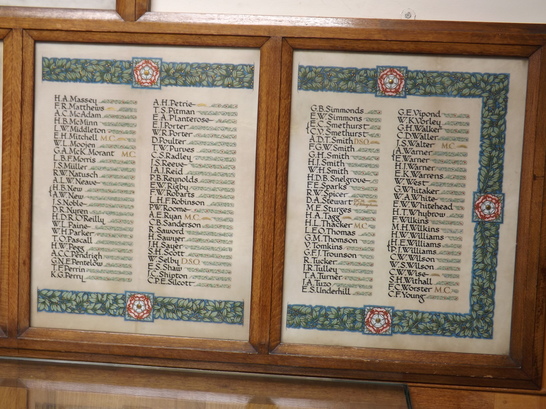 H.A.Massey
F.R.Matthews
A.C.McAdam
H.B.McMinn
L.W.Middleton
E.H.Mitchell M.C.
W.L.Moojen
G.A.McK.Morant M.C.
L.B.F.Morris
J.S.Müller
R.W.Natusch
A.L.W.Neave
H.B.New
A.W.New
J.S.Noble
D.R.Nuyen
H.D.R.O'Reilly
W.L.Paine
W.H.Parker
T.O.Pascall
H.W.Pegg
A.C.C.Pendrigh
G.N.E.Pentelow
E.T.Perrin
K.G.Perry
A.H.Petrie
T.S.Pitman
E.A.Planterose
E.I.Porter
W.R.Porter
D.Poulter
T.W.Purves
C.S.Radley
J.S.Reeve
J.A.I.Reid
P.B.Reynolds
E.W.Rigby
F.W.Robarts
L.H.F.Robinson
P.W.Roome
A.E.Ryan M.C.
C.B.Sanderson
R.Sawer
H.Sawyer
J.H.Sayer
S.H.Scott
W.Selby D.S.O.
E.S.Shaw
F.L.Shipton
C.P.E.Silcott
G.B.Simmonds
E.W.Simmons
E.C.Smethurst
C.V.Smethurst
A.D.T.Smith D.S.O.
F.G.W.Smith
G.H.Smith
H.J.Smith
W.H.Smith
H.D.B.Snelgrove
F.E.Sparks
R.W.Spoor
D.A.Stewart
M.E.Sturges
H.A.Tagg
H.L.Thacker M.C.
L.E.O.Thomas
G.M.Thomson
V.Tomkins
G.F.J.Trounson
R.Tucker
J.R.Tulley
T.A.Turner
J.A.Tuzo
E.S.Underhill
G.E.Vipond
W.K.Vorley
G.H.Walker
C.D.Waller
J.S.Walter M.C.
A.Warner
E.Warner
H.J.Warner
E.K.Warrens
W.West
G.Whitaker
E.A.White
W.Whitehead
H.T.Whybrow
E.Wilkins
H.Wilkins
H.W.Williams
H.E.Williams
P.J.Williams
W.L.Wilson
W.S.Wilson
C.W.Wise
S.H.Withall
F.C.Worster M.C.
C.F.Young